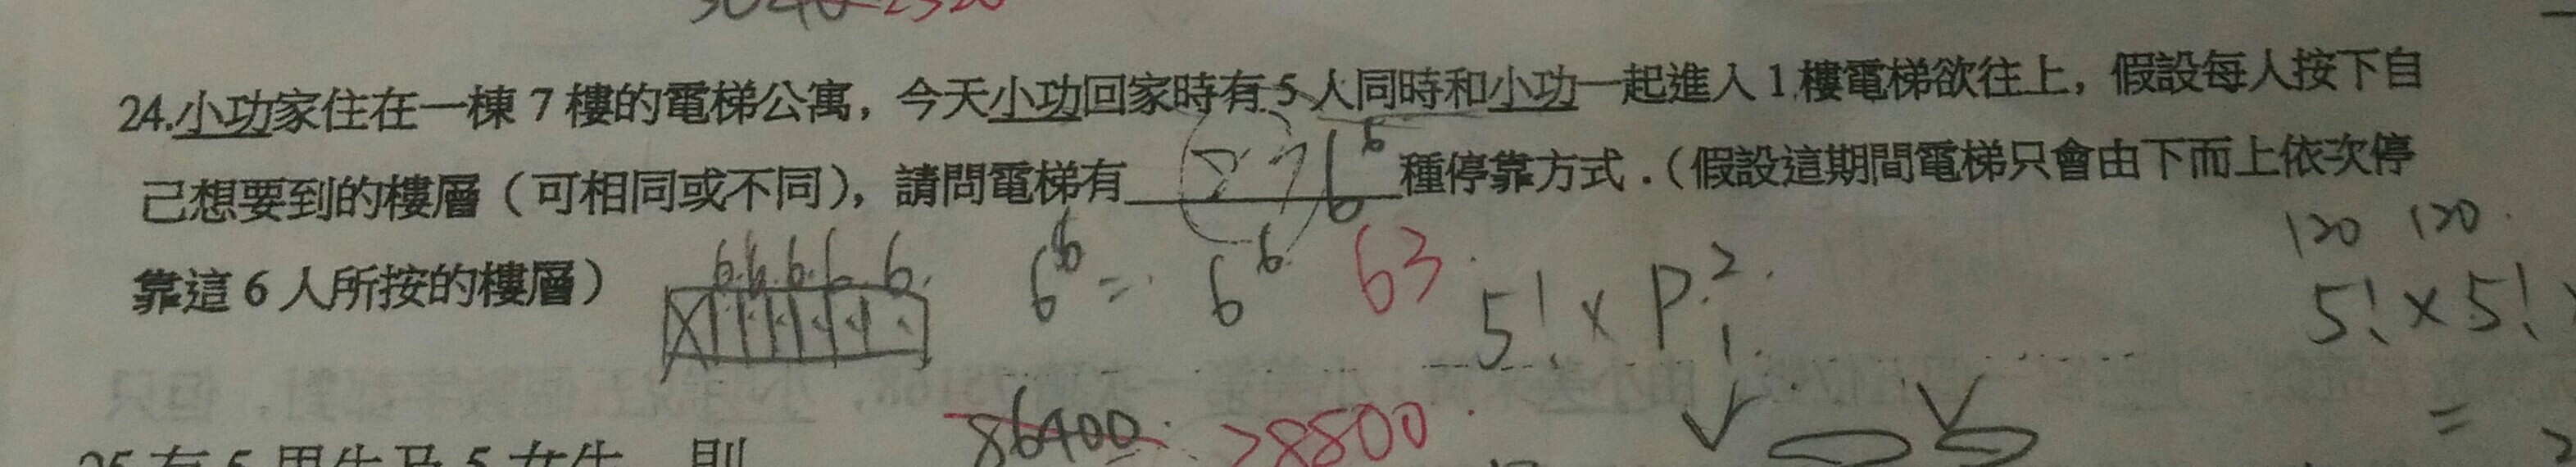 24.小功家住在一棟 7 樓的電梯公寓，今天小功回家時有 5 人同時和小功一起進入 1 樓電梯欲往上，假設每人按下自
己想要到的樓層（可相同或不同），請問電梯有 6⁶ 種停靠方式．（假設這期間電梯只會由下而上依次停
靠這 6 人所按的樓層）
6 6 6 6 6
6⁶ = 6⁶ 63
5! × P
120 120
5! × 5!
=
86400 28800
25.有 5 男生及 5 女生，則